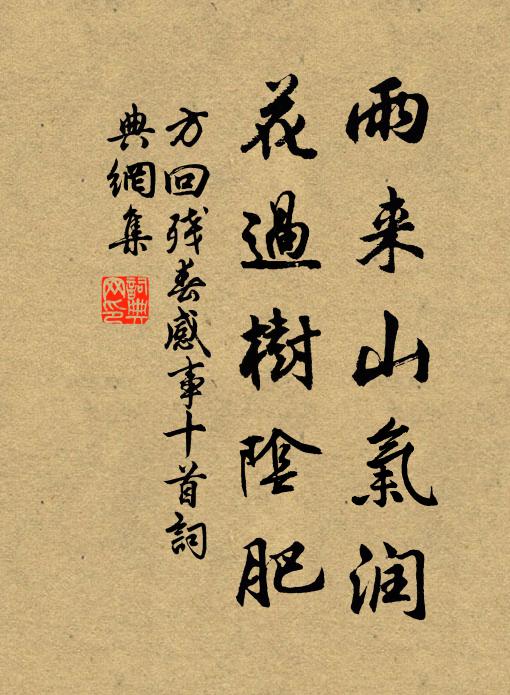 雨来山氣润
花過樹陰肥
方回残春感事十首詞
典網集
詞典網印